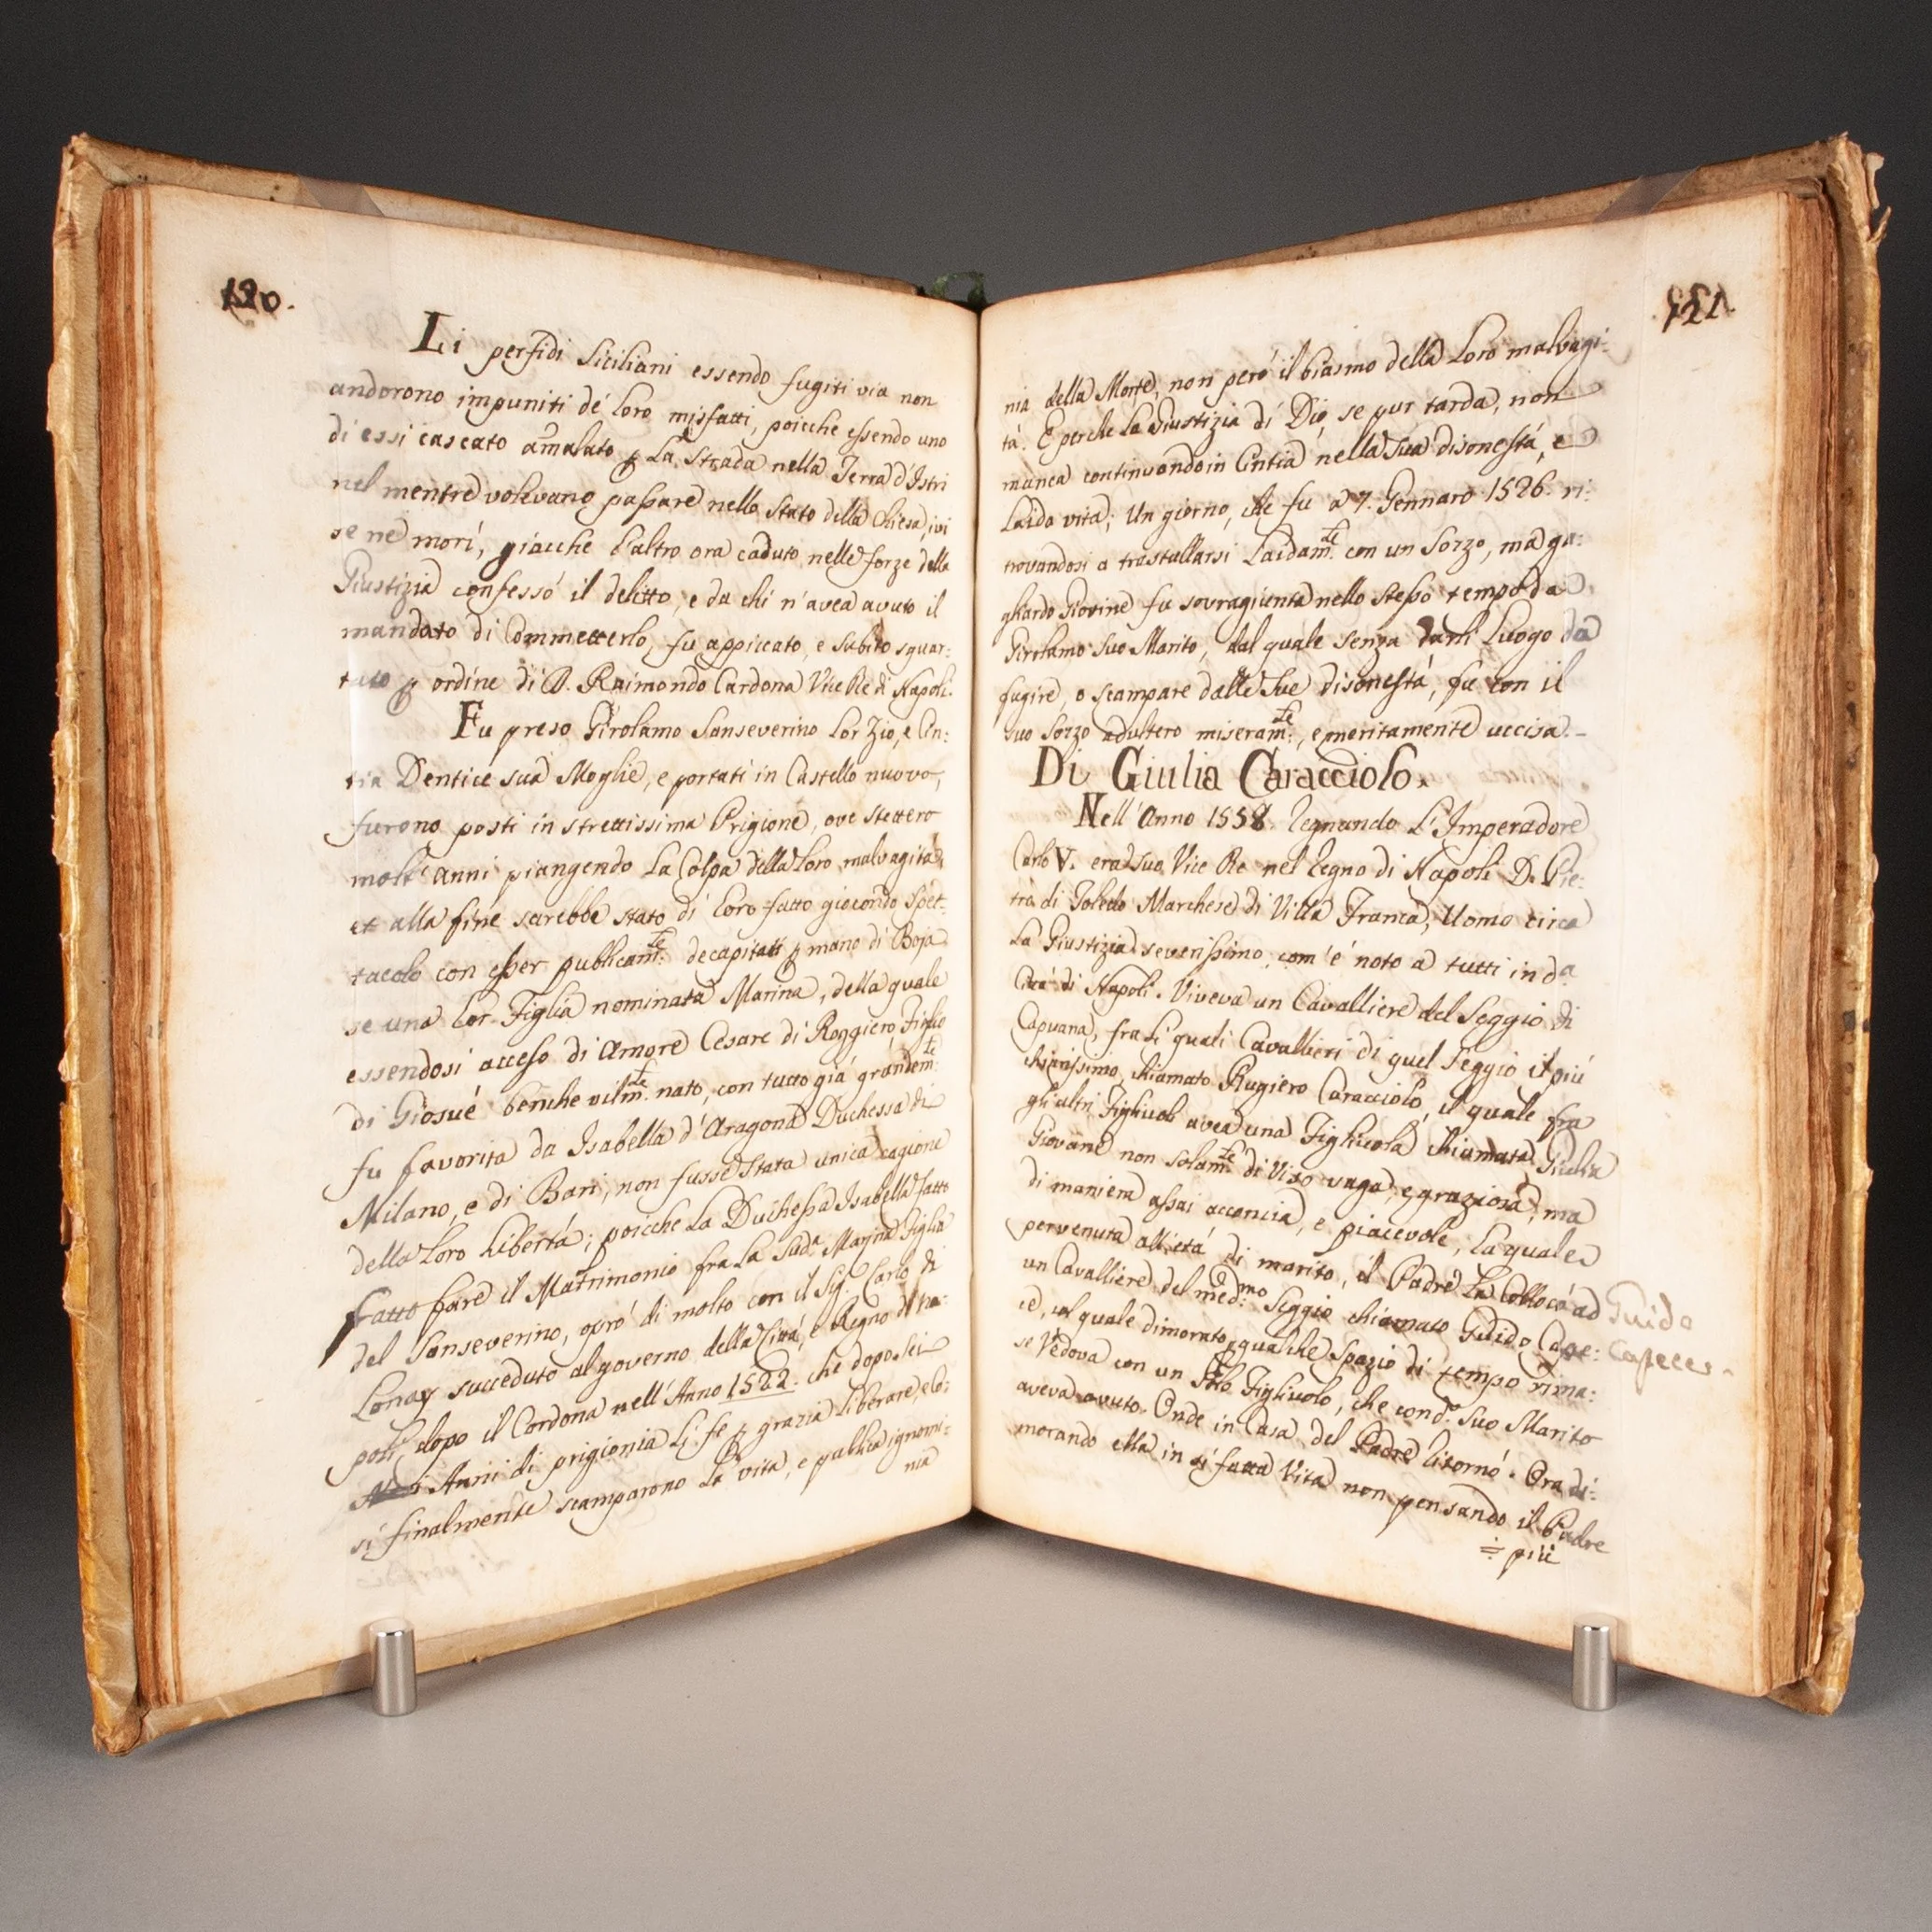 120.
Li perfidi Siciliani essendo fugiti via non
andorono impuniti de' loro misfatti, poicche essendo uno
di essi cascato amalato p La Strada nella Terra d'Istri
nel mentre volevano passare nello Stato della Chiesa, ivi
se ne morì, giacche l'altro ora caduto nelle forze della
Giustizia confessò il delitto, e da chi n'avea avuto il
mandato di Commetterlo, fu appiccato, e subito squar:
tato p ordine di D. Raimondo Cardona Vice Re di Napoli.
Fu preso Girolamo Sanseverino Lor Zio, e Cin:
tia Dentice sua Moglie, e portati in Castello nuovo,
furono posti in strettissima Prigione, ove stettero
molt' anni piangendo La Colpa della Loro malvagità,
et alla fine sarebbe stato di Loro fatto giocondo Spet:
tacolo con esser publicam.te decapitati p mano di Boja
se una Lor Figlia nominata Marina, della quale
essendosi acceso di Amore Cesare di Roggiero, Figlio
di Giosuè benche vilm.te nato, con tutto già grandem.te
fu favorita da Isabella d'Aragona Duchessa di
Milano, e di Bari, non fusse stata unica cagione
della Loro Libertà; poicche La Duchessa Isabella fatto
fatto fare il Matrimonio fra La Sud.a Marina Figlia
del Sanseverino, oprò di molto con il Sig. Carlo di
Lonoy succeduto al governo della Città, e Regno di Na:
poli dopo il Cardona nell'Anno 1522. che dopo sei
Anni di prigionia Li fe p grazia liberare, e co:
sì finalmente scamparono La vita, e publica ignomi:
nia
121.
nia della Morte, non però il biasmo della Loro malvagi:
tà. E perche La Giustizia di Dio, se pur tarda, non
manca continuando in Cintia nella sua disonestà, e
Laida vita; Un giorno, che fu a 7. Gennaro 1526. ri:
trovandosi a trastullarsi Laidam.te con un Sorzo, ma ga:
gliardo Giovine fu sovragiunta nello stesso tempo da
Girolamo suo Marito, dal quale senza darli Luogo da
fugire, o scampare dalle sue disonestà, fu con il
suo Sorzo adultero miseram.te, e meritamente uccisa.
Di Giulia Caracciolo.
Nell'Anno 1538. Regnando L'Imperadore
Carlo V. era suo Vice Re nel Regno di Napoli D. Pie:
tro di Toledo Marchese di Villa Franca, Uomo circa
La Giustizia severissimo, com'è noto a tutti in d.a
Città di Napoli. Viveva un Cavalliere del Seggio di
Capuana, fra li quali Cavallieri di quel Seggio il più
chiarissimo, chiamato Rugiero Caracciolo, il quale fra
gli altri Figliuoli avea una Figliuola chiamata Giulia
Giovane non solam.te di Viso vaga, e graziosa, ma
di maniera assai acconcia, e piacevole, La quale
pervenuta all'età di marito, il Padre La collocò ad
un Cavalliere del med.mo Seggio chiamato Guido Cape:
ce, col quale dimorato qualche Spazio di tempo rima:
se Vedova con un solo Figliuolo, che con d.o Suo Marito
aveva avuto. Onde in Casa del Padre ritornò. Ora di:
morando ella in sì fatta Vita non pensando il Padre
più
Guido
Capece